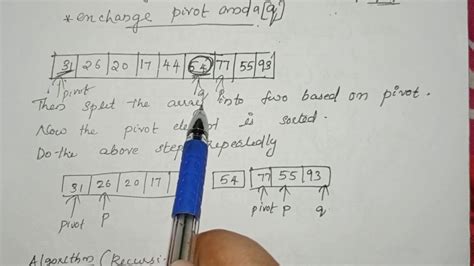 *exchange pivot and a[q]
31 26 20 17 44 54 77 55 93
pivot q P
Then split the array into two based on pivot.
Now the pivot element is sorted.
Do the above steps repeatedly
31 26 20 17 54 77 55 93
pivot P pivot P q
Algorithm (Recursi